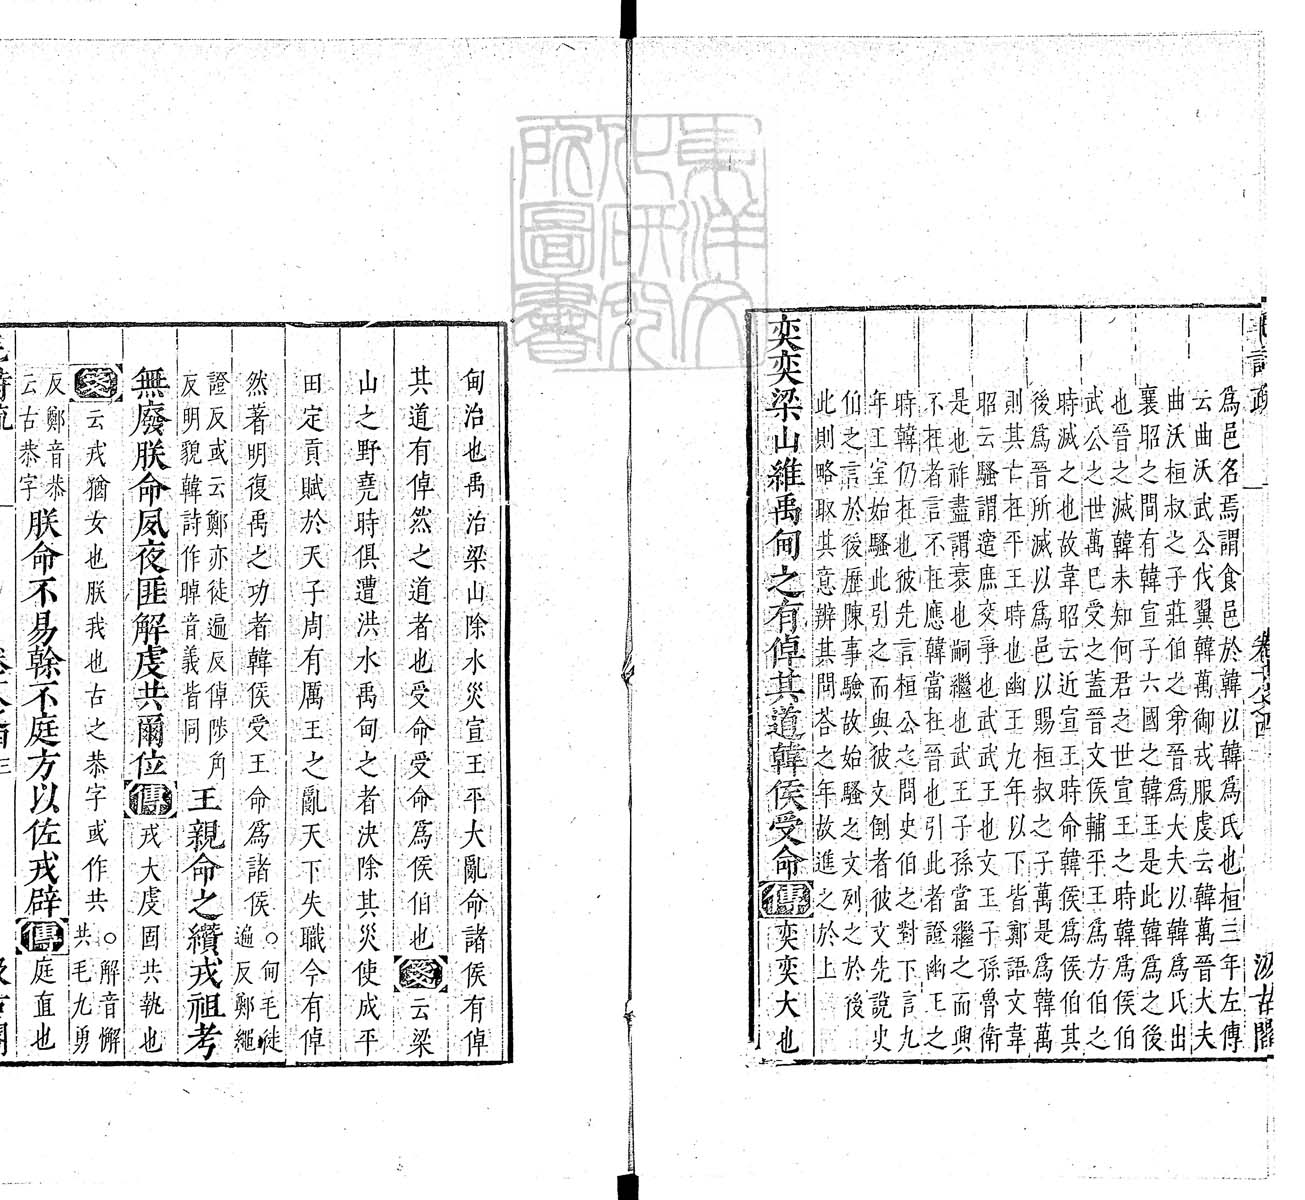 毛詩疏　卷十八之四　汲古閣
為邑名焉謂食邑於韓以韓為氏也桓三年左傳
云曲沃武公伐翼韓萬御戎服虔云韓萬晉大夫
曲沃桓叔之子莊伯之弟晉為大夫以韓為氏出
襄昭之間有韓宣子六國之韓王是此韓為之後
也晉之滅韓未知何君之世宣王之時韓為侯伯
武公之世萬巳受之蓋晉文侯輔平王為方伯之
時滅之也故韋昭云近宣王時命韓侯為侯伯其
後為晉所滅以為邑以賜桓叔之子萬是為韓萬
則其亡在平王時也幽王九年以下皆鄭語文韋
昭云騷謂適庶交爭也武武王也文王子孫魯衛
是也祚盡謂衰也嗣繼也武王子孫當繼之而興
不在者言不在應韓當在晉也引此者證幽王之
時韓仍在也彼先言桓公之問史伯之對下言九
年王室始騷此引之而與彼文倒者彼文先說史
伯之言於後歷陳事驗故始騷之文列之於後
此則略取其意辨其問荅之年故進之於上
奕奕梁山維禹甸之有倬其道韓侯受命傳奕奕大也
甸治也禹治梁山除水災宣王平大亂命諸侯有倬
其道有倬然之道者也受命受命為侯伯也箋云梁
山之野堯時俱遭洪水禹甸之者決除其災使成平
田定貢賦於天子周有厲王之亂天下失職今有倬
然著明復禹之功者韓侯受王命為諸侯○甸毛徒
遍反鄭繩
證反或云鄭亦徒遍反倬陟角
反明貌韓詩作晫音義皆同王親命之纘戎祖考
無廢朕命夙夜匪解虔共爾位傳戎大虔固共執也
箋云戎猶女也朕我也古之恭字或作共○解音懈
共毛九勇
反鄭音恭
云古恭字朕命不易榦不庭方以佐戎辟傳庭直也
毛詩疏　卷十八之四　三　汲古閣
東洋文化研究所圖書